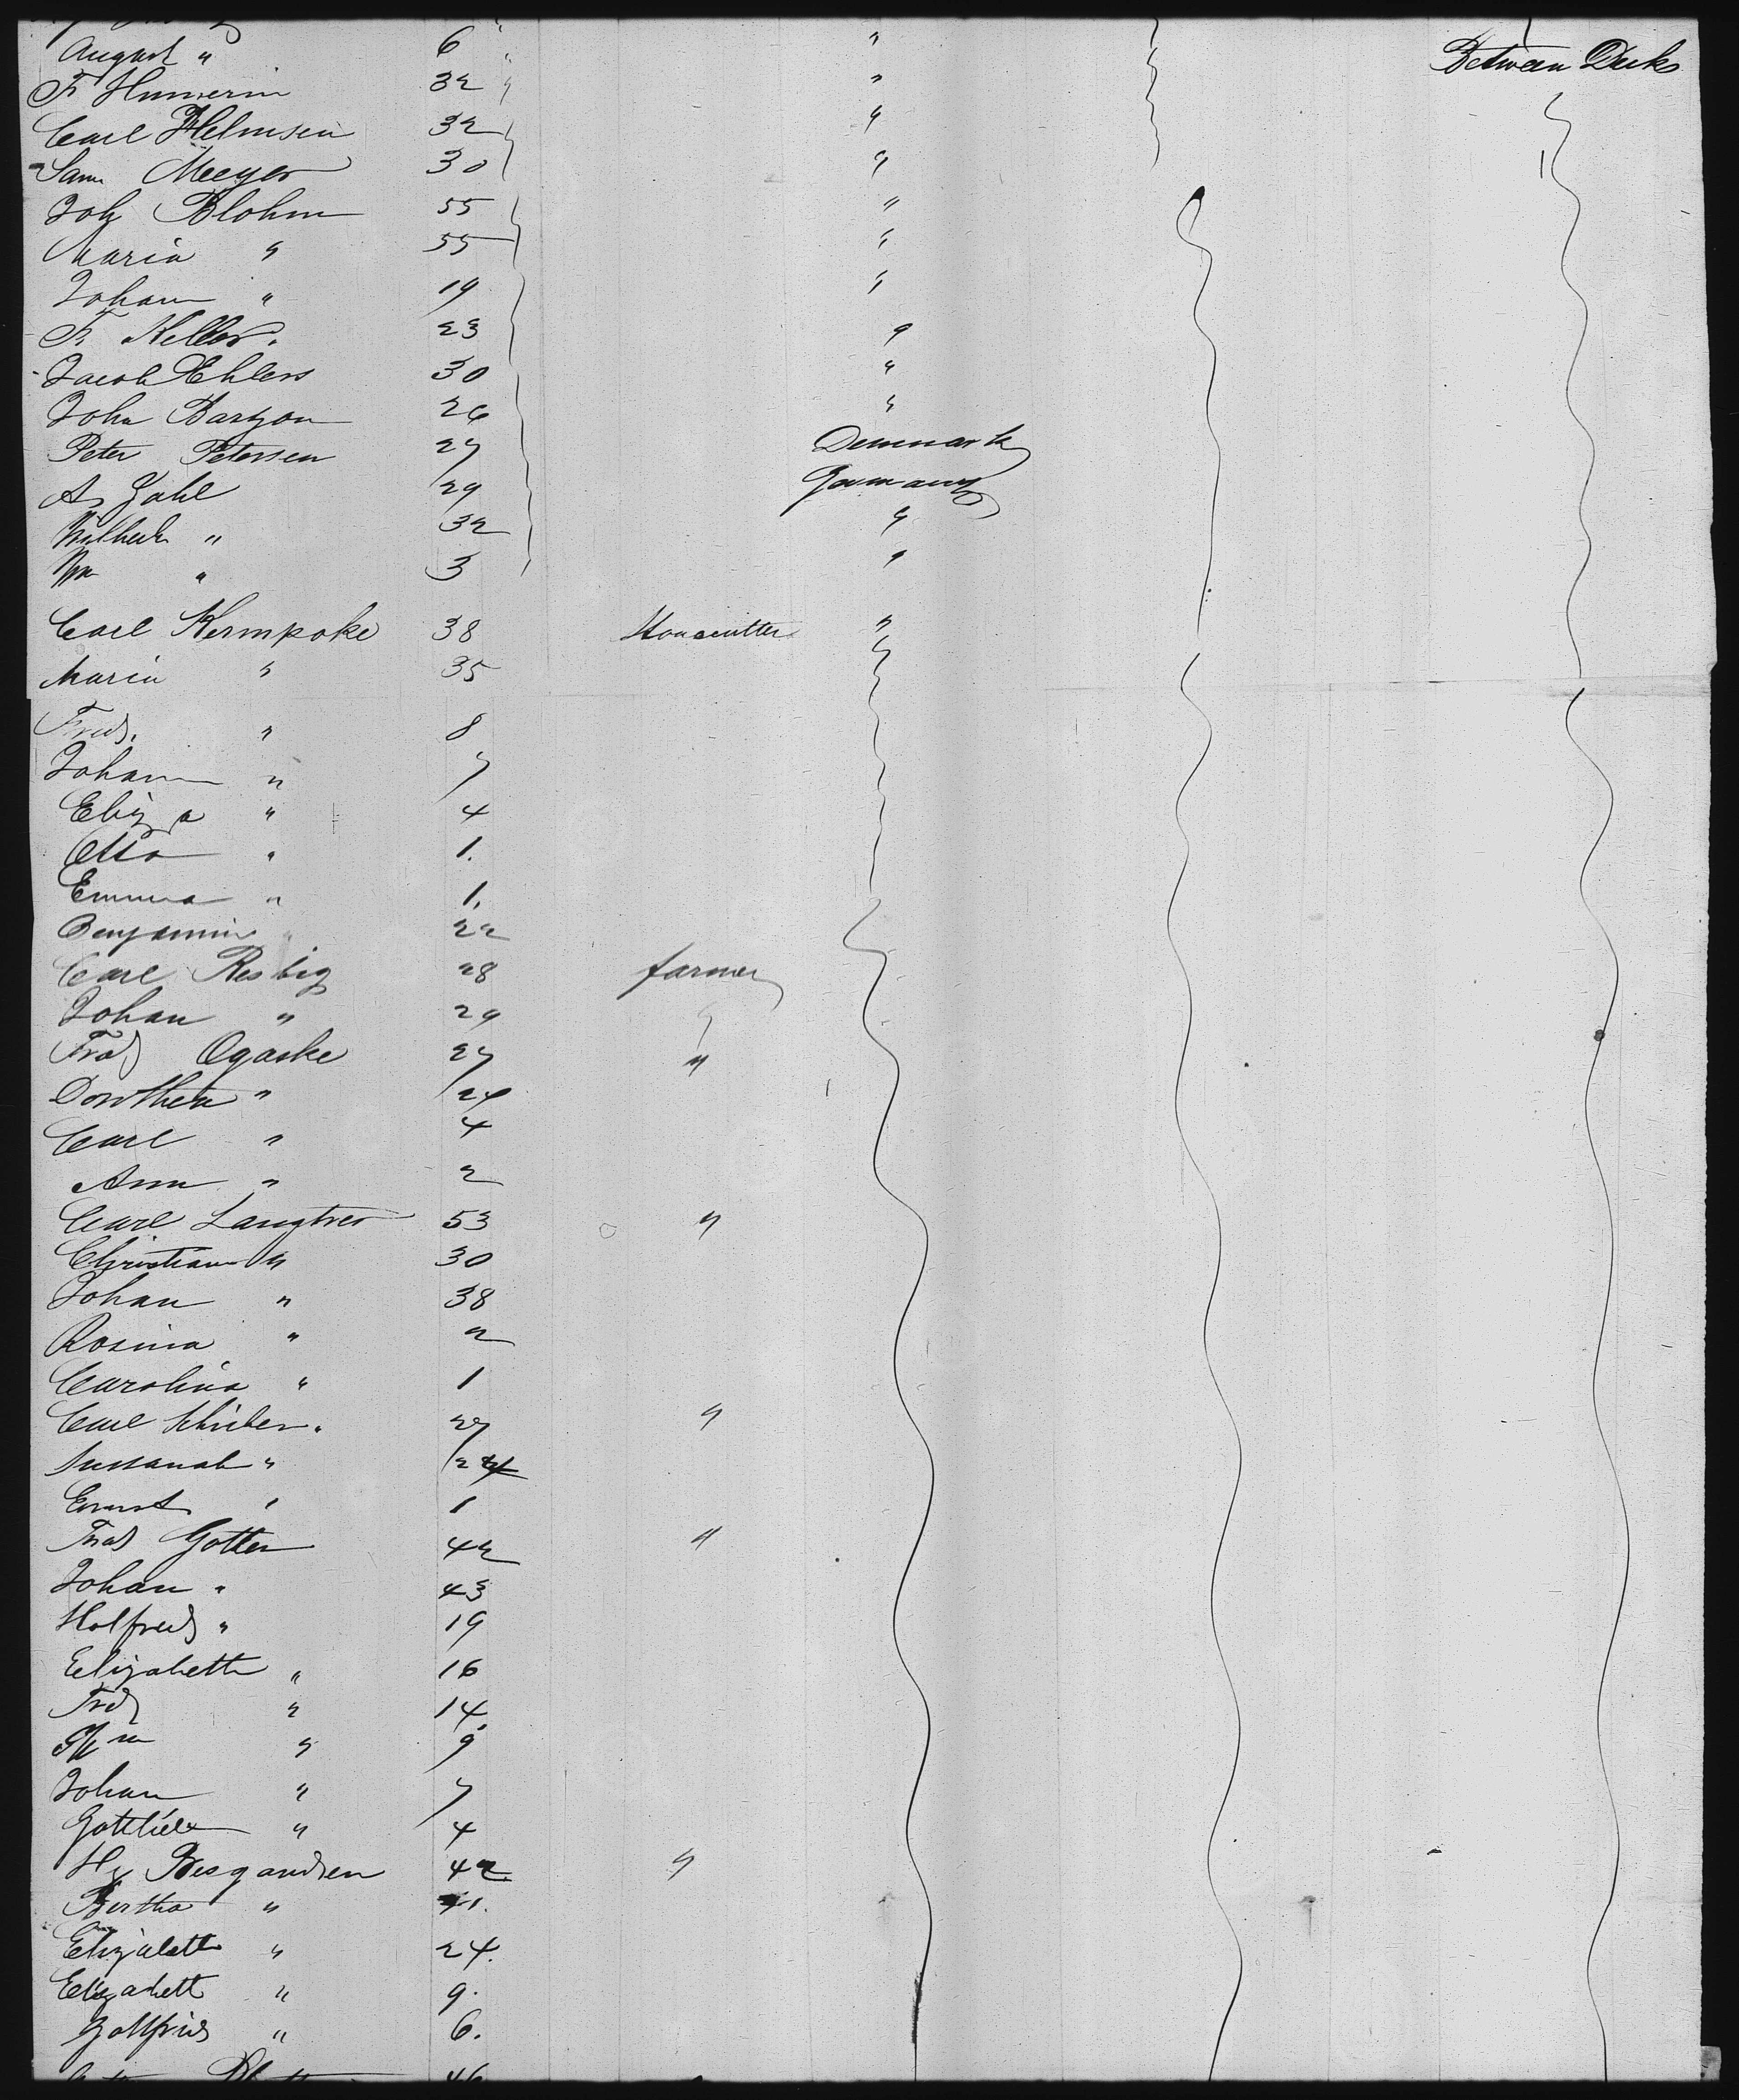 August " 6 " " Between Decks
Fr 32 " "
Carl Helmsen 32 "
Sam Meeyer 30 "
Joh Blohm 55 "
Maria " 55 "
Johann " 19 "
Fr Keller. 23 "
Jacob Ehlers 30 "
John Baryon 26 "
Peter Petersen 27 Denmark
A Zahl 29 Germany
Wilhelm " 32 "
Wm " 3 "
Carl Kermpoke 38 Stonecutter "
Maria " 35
Fred. " 8
Johann " 7
Eliza " 4
Otto " 1.
Emma " 1.
Benjamin " 22
Carl Resbig 28 farmer
Johan " 29
Fred Ogaske 27 "
Dorothea " 24
Carl " 4
Ann " 2
Carl Langtres 53 "
Christian " 30
Johan " 38
Rosina " 2
Carolina " 1
Carl 27 "
Sussanah " 24
Ernst " 1
Fred Gotten 42 "
Johan " 43
Holfred " 19
Elizabeth " 16
Fred " 14
Wm " 9
Johan " 7
Gottlieb " 4
Hy Besgandsen 42 "
Bertha " 41.
Elizabeth " 24.
Elizabeth " 9.
Gottfried " 6.
46